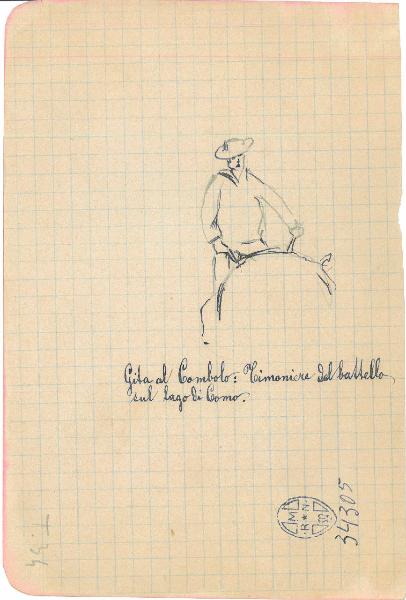 Gita al Combolo: Timoniere del battello
sul Lago di Como.
M
R * N
34305